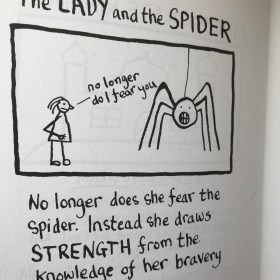 The LADY and the SPIDER
no longer
do I fear you
No longer does she fear the
spider. Instead she draws
STRENGTH from the
knowledge of her bravery